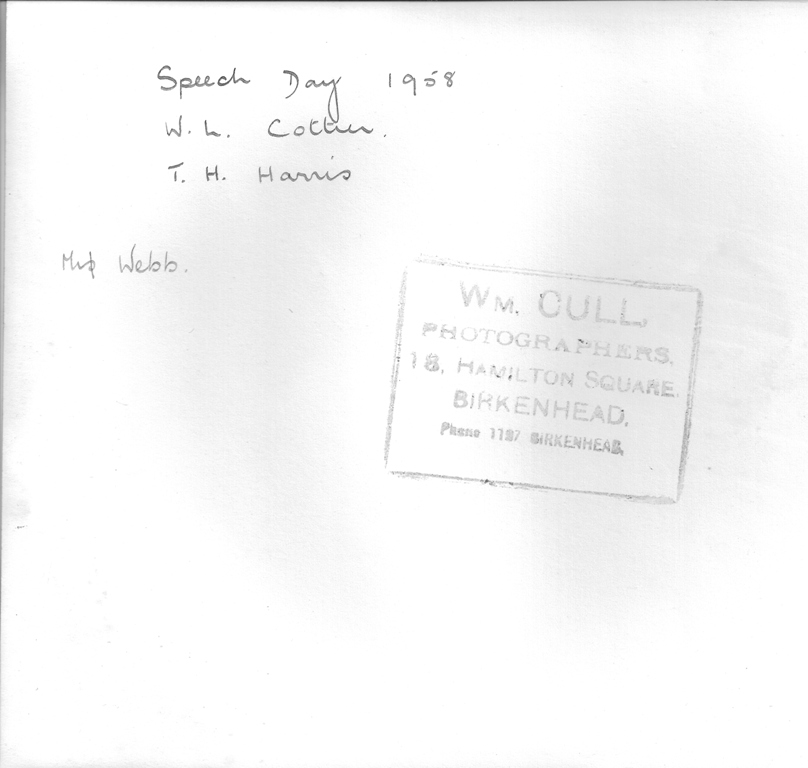 Speech Day 1958
W. L. Cottier.
T. H. Harris
Webb.
WM. CULL,
PHOTOGRAPHERS,
18, HAMILTON SQUARE,
BIRKENHEAD,
Phone 1197 BIRKENHEAD,